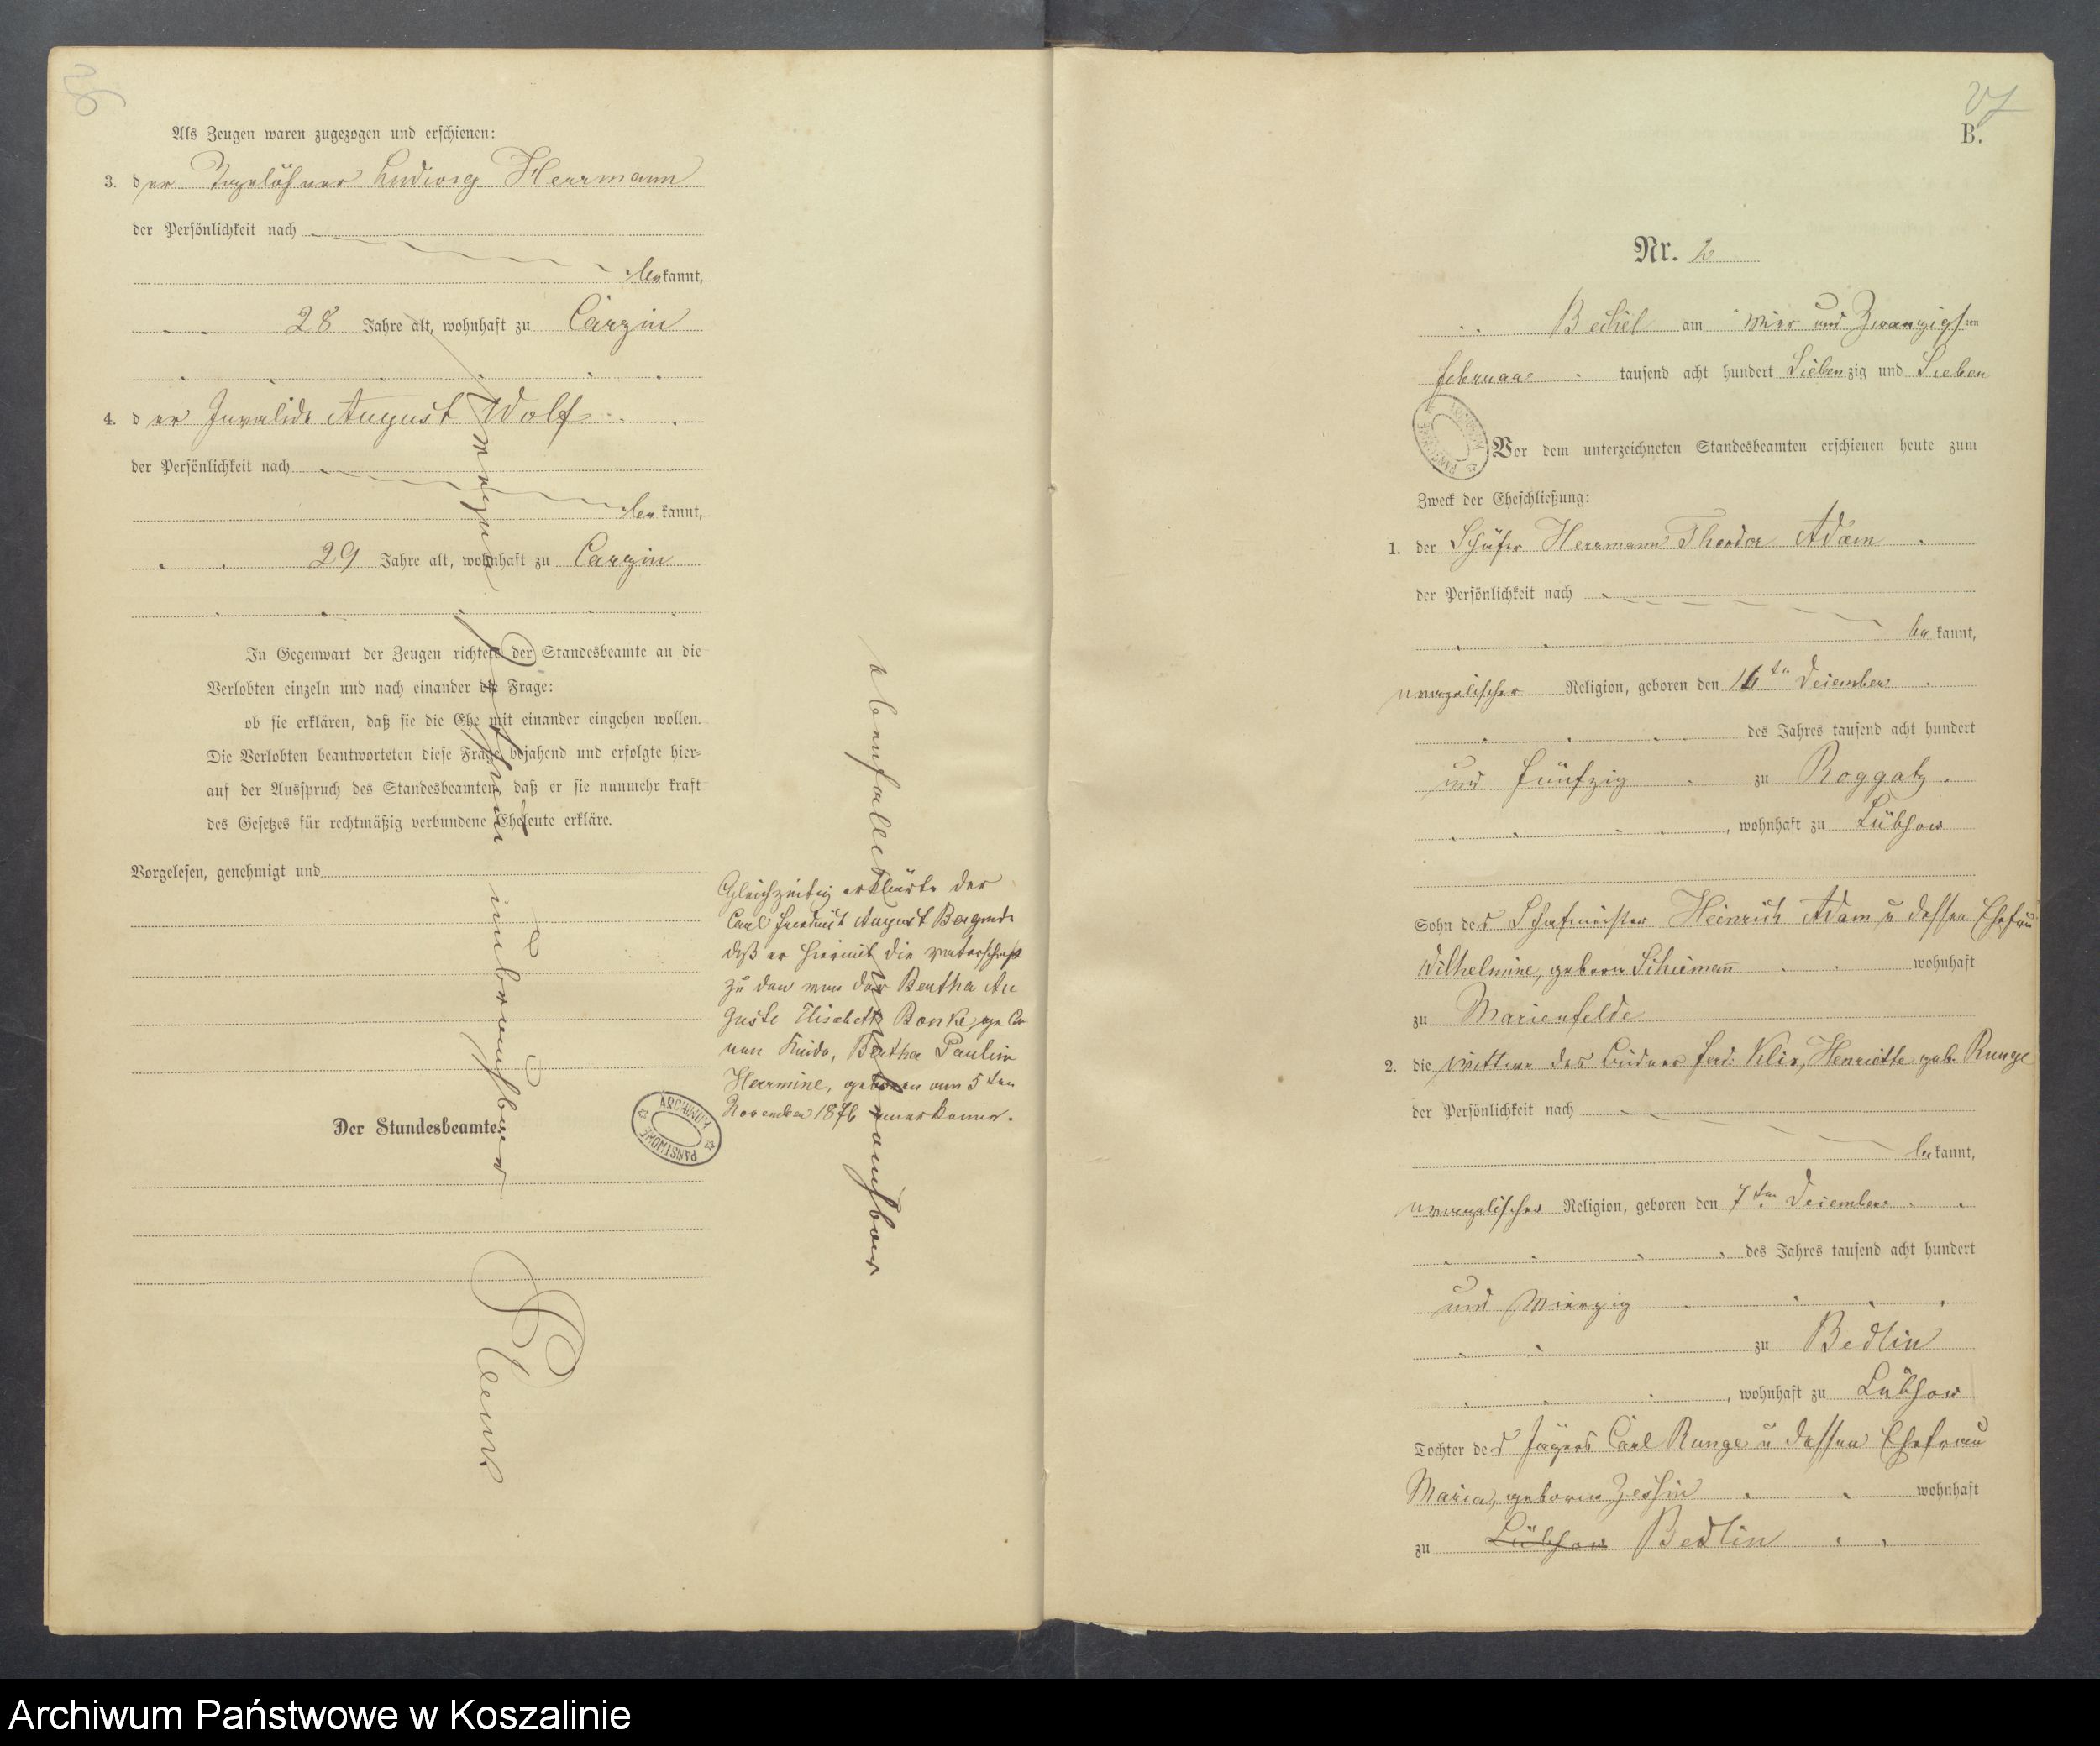 26
Als Zeugen waren zugezogen und erschienen:
3. der Tagelöhner Ludwig Herrmann
der Persönlichkeit nach
bekannt,
28 Jahre alt, wohnhaft zu Carzin
4. der Invalide August Wolf
der Persönlichkeit nach
bekannt,
29 Jahre alt, wohnhaft zu Carzin
In Gegenwart der Zeugen richtete der Standesbeamte an die
Verlobten einzeln und nach einander die Frage:
ob sie erklären, daß sie die Ehe mit einander eingehen wollen.
Die Verlobten beantworteten diese Frage bejahend und erfolgte hier-
auf der Ausspruch des Standesbeamten, daß er sie nunmehr kraft
des Gesetzes für rechtmäßig verbundene Eheleute erkläre.
Vorgelesen, genehmigt und
Der Standesbeamte
unbrauchbar
Gleichzeitig erklärte der
Carl Friedrich August
daß er hiermit die Vaterschaft
zu dem von der Bertha Au
guste Elisabeth Bonke, ge bo
nen Kinde, Bertha Pauline
Herrmine, geboren am 5 ten
November 1876 anerkenne.
ebenfalls unbrauchbar
ARCHIWUM PAŃSTWOWE
27
B.
Nr. 2
Bechel am vier und Zwanzigsten
Februar tausend acht hundert Siebenzig und Sieben
ARCHIWUM PAŃSTWOWE
Vor dem unterzeichneten Standesbeamten erschienen heute zum
Zweck der Eheschließung:
1. der Schäfer Herrmann Theodor Adam
der Persönlichkeit nach
bekannt,
evangelischer Religion, geboren den 16 ten Dezember
des Jahres tausend acht hundert
und fünfzig zu Roggatz
, wohnhaft zu Lübzow
Sohn des Schafmeister Heinrich Adam u dessen Ehefrau
Wilhelmine, geboren Schiemann wohnhaft
zu Marienfelde
2. die Wittwe des Büdner Ferd: Kliz, Henriette geb. Runge
der Persönlichkeit nach
bekannt,
evangelischer Religion, geboren den 7 ten Dezember
des Jahres tausend acht hundert
und vierzig
zu Bedlin
, wohnhaft zu Lübzow
Tochter des Jägers Carl Runge u dessen Ehefrau
Maria, geboren Zessin wohnhaft
zu Lübzow Bedlin
Archiwum Państwowe w Koszalinie